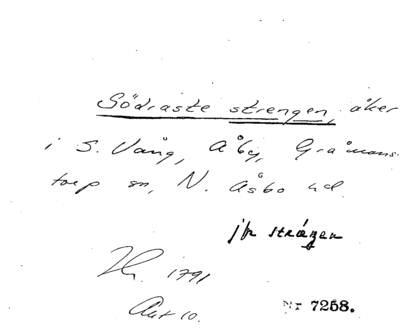 Södraste strengen, åker
i S. Vång, Åby, Gråmans-
torp sn, N. Åsbo hd.
jfr strägen
1791
Akt 10.
Nr 7258.